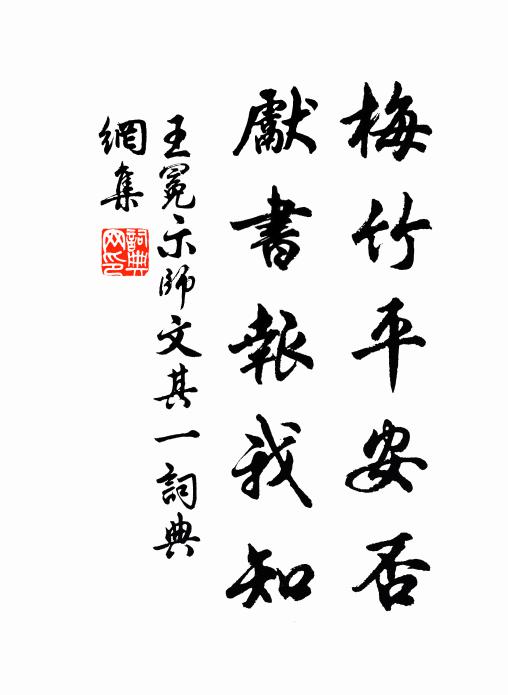 梅竹平安否
獻書報我知
王冕示師文其一詞典
網集
詞典網印